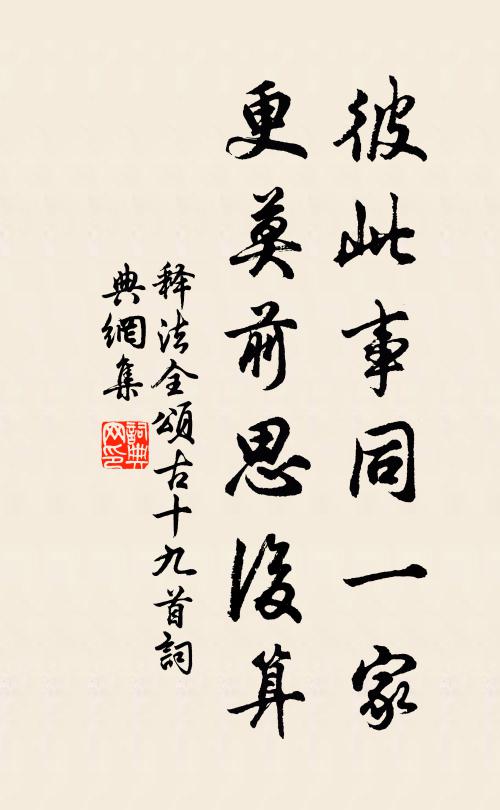 彼此事同一家
更莫前思後算
释法全頌古十九首詞
典網集
詞典
网印